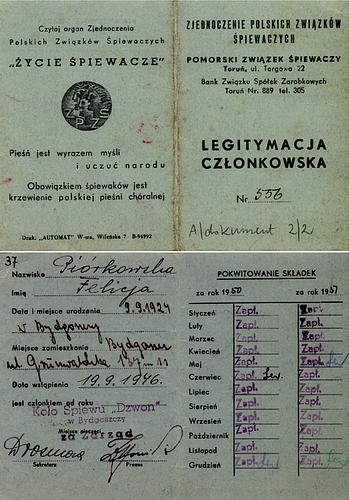 Czytaj organ Zjednoczenia
Polskich Związków Śpiewaczych
„ŻYCIE ŚPIEWACZE”
Pieśń jest wyrazem myśli
i uczuć narodu
Obowiązkiem śpiewaków jest
krzewienie polskiej pieśni chóralnej
Druk. „AUTOMAT” W-wa, Wileńska 7 B-54992
ZJEDNOCZENIE POLSKICH ZWIĄZKÓW
ŚPIEWACZYCH
POMORSKI ZWIĄZEK ŚPIEWACZY
Toruń, ul. Targowa 22
Bank Związku Spółek Zarobkowych
Toruń Nr. 889 tel. 305
LEGITYMACJA
CZŁONKOWSKA
Nr. 556
A/dokument 2/2
37
Nazwisko Piórkowska
Imię Felicja
Data i miejsce urodzenia 9.9.1924
w Bydgoszczy
Miejsce zamieszkania Bydgoszcz
ul. Grunwaldzka 137 m 11
Data wstąpienia 19.9.1946.
jest członkiem od roku
Koło Śpiewu „Dzwon”
w Bydgoszczy
Miejsce pieczęci
za Zarząd
Sekretarz Prezes
POKWITOWANIE SKŁADEK
za rok 1950 za rok 1951
Styczeń Zapł. Zapł.
Luty Zapł. Zapł.
Marzec Zapł. Zapł.
Kwiecień Zapł. Zapł.
Maj Zapł. Zapł.
Czerwiec Zapł. Zapł.
Lipiec Zapł. Zapł.
Sierpień Zapł. Zapł.
Wrzesień Zapł. Zapł.
Październik Zapł. Zapł.
Listopad Zapł. Zapł.
Grudzień Zapł. Zapł.